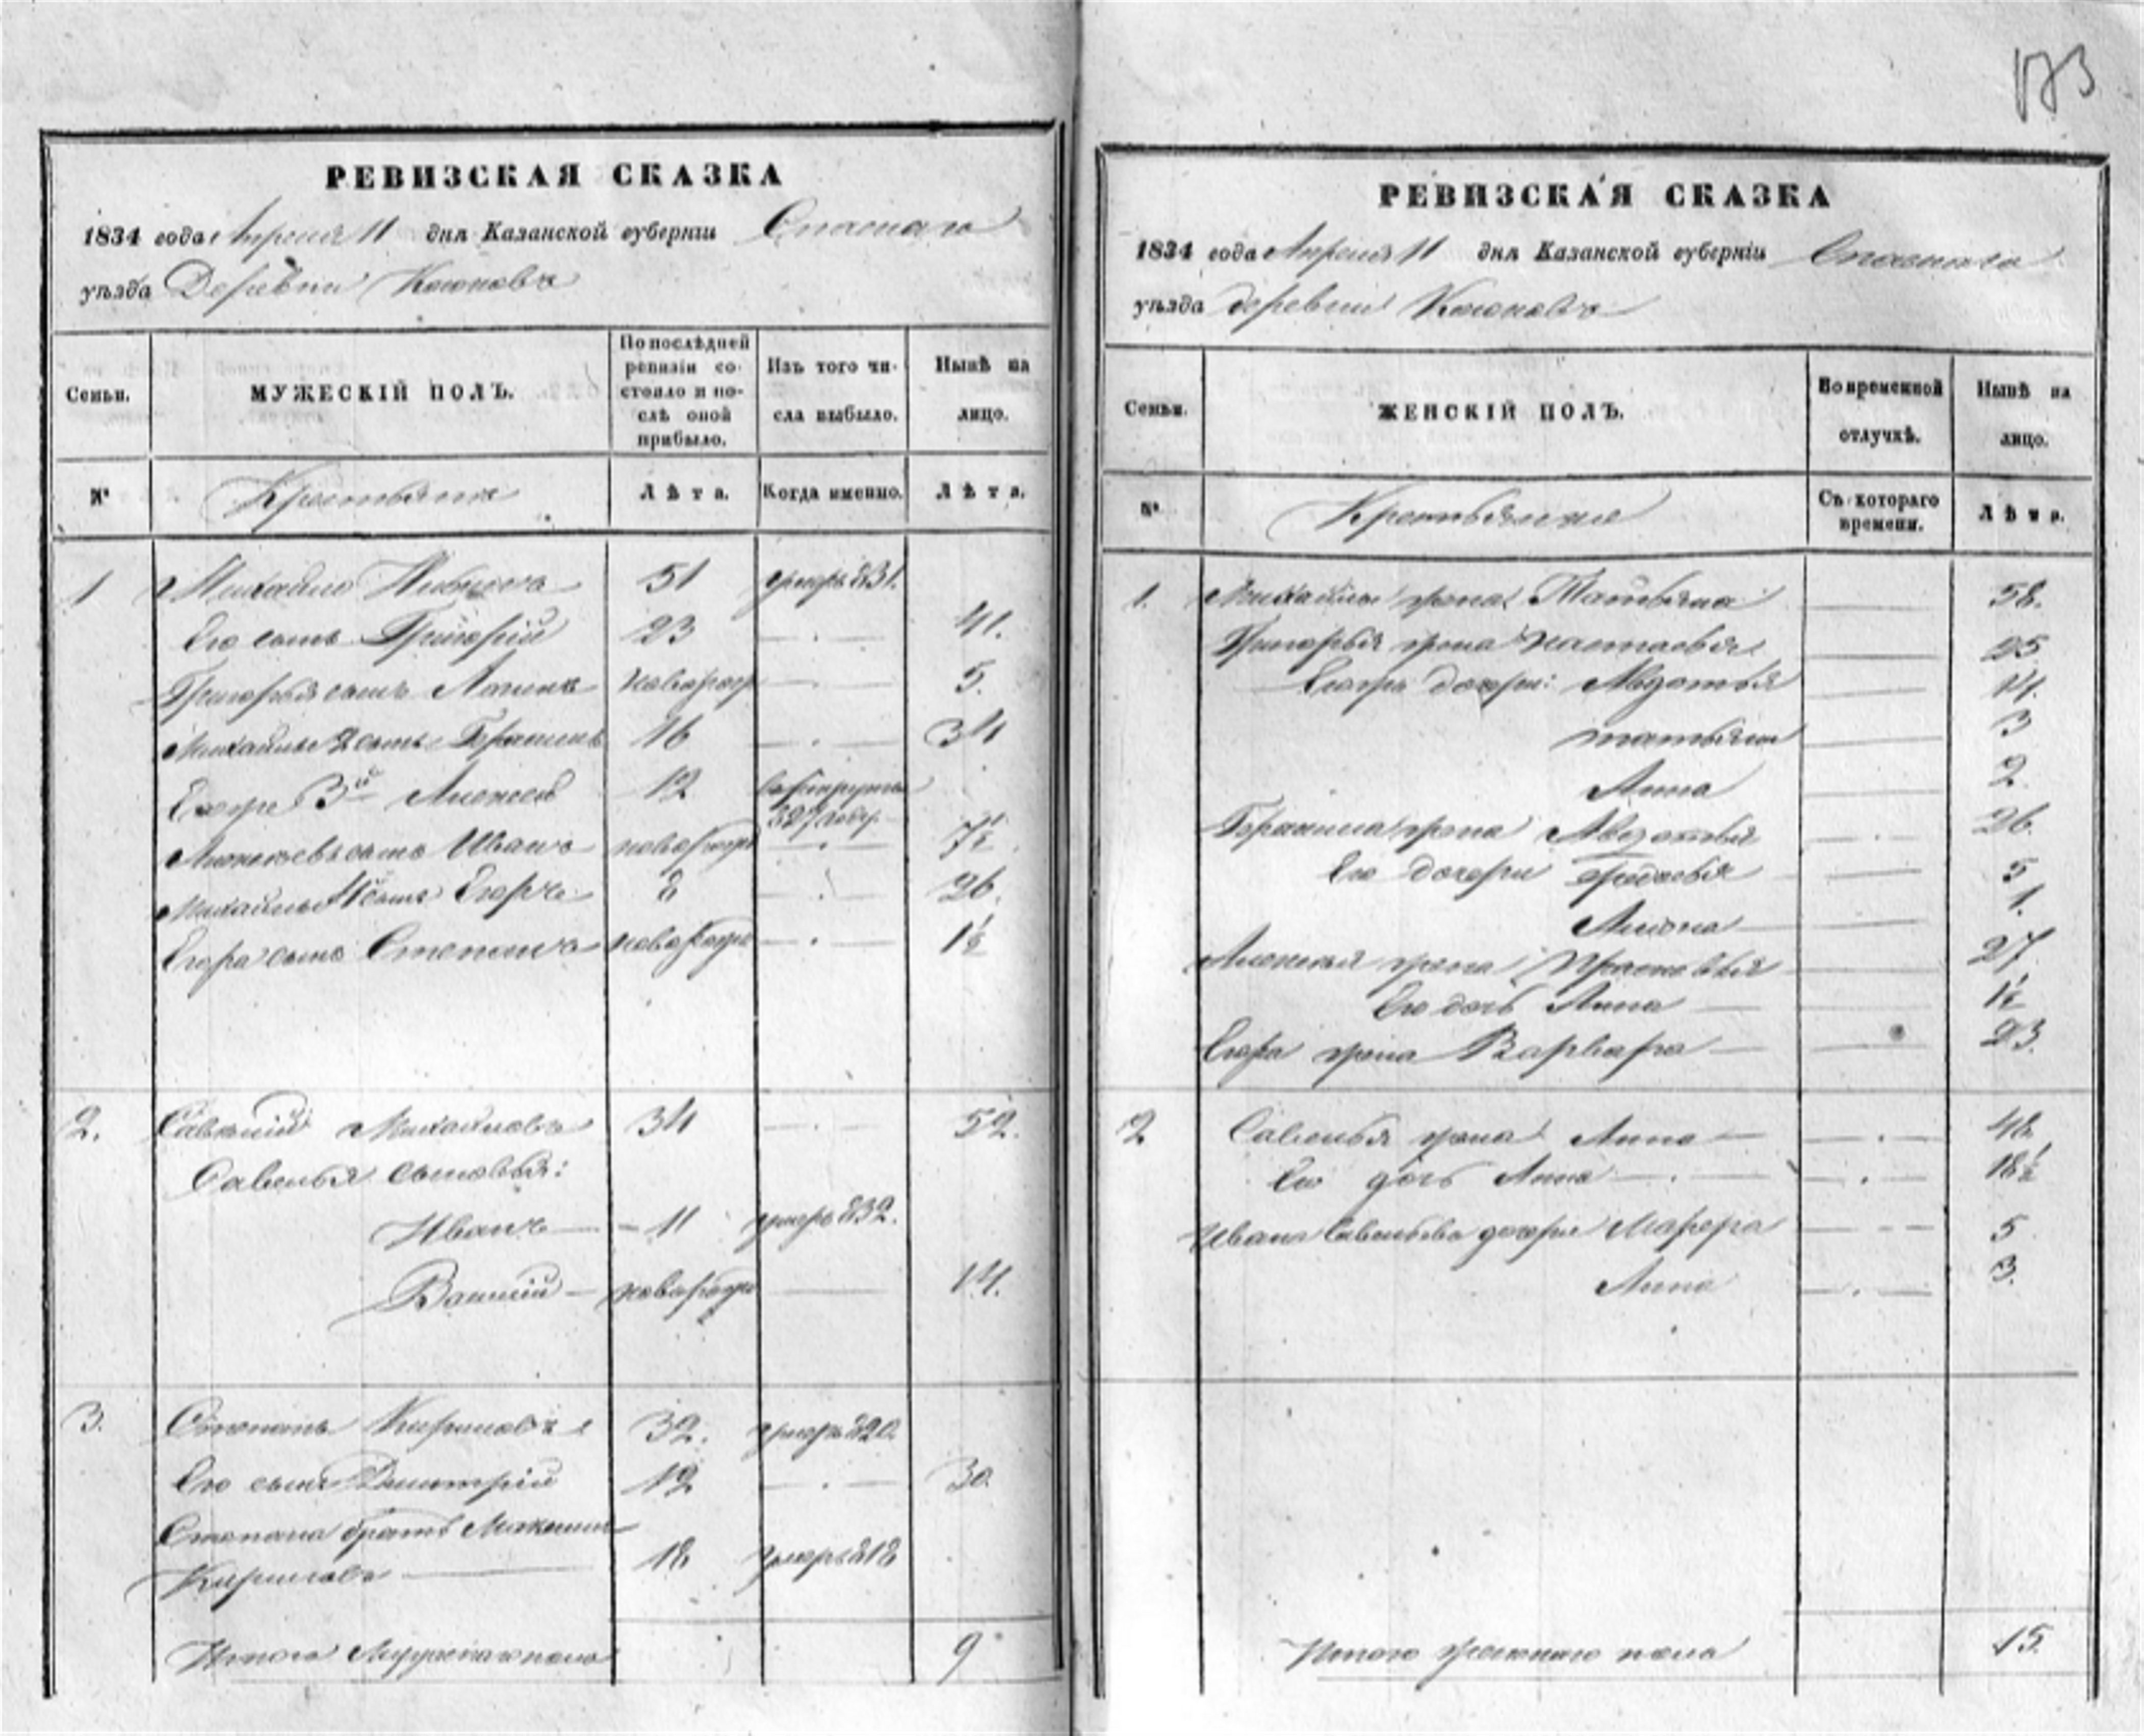 РЕВИЗСКАЯ СКАЗКА
1834 года Апреля 11 дня Казанской губерніи Спаскаго
уѣзда Деревни
Семьи.
МУЖЕСКІЙ ПОЛЪ.
По послѣдней
ревизіи со-
стояло и по-
слѣ оной
прибыло.
Изъ того чи-
сла выбыло.
Нынѣ на
лицо.
№ Крестьяне Лѣта. Когда именно. Лѣта.
1 Михайло 51 умеръ 831.
Его сынъ Григорій 23 — . — 41.
Григорья сынъ новорож — . — 5.
Михайлы 2 сынъ 16 — . — 34
3й Алексей 12 в рекруты
827 году
Алексеевъ сынъ Иванъ новорож — . — 7½
Михайлы 4 сынъ Егоръ 8 — . — 26.
Егора сынъ Степанъ новорож — . — 1½
2. Савелій Михайловъ 34 — . — 52.
Савелья сыновья:
Иванъ — 11 умеръ 832.
Василий — новорож — 14.
3. Степанъ Кириловъ 32. умеръ 820.
Его сынъ Дмитрій 12 — . — 30.
Степана братъ Максимъ
Кириловъ — 18 умеръ 818
Итого Мужескаго пола 9
173
РЕВИЗСКАЯ СКАЗКА
1834 года Апреля 11 дня Казанской губерніи Спаскаго
уѣзда деревни
Семьи.
ЖЕНСКІЙ ПОЛЪ.
Во временной
отлучкѣ.
Нынѣ на
лицо.
№. Крестьяне
Съ котораго
времени.
Лѣта.
1. Михайлы жена Татьяна — 58.
Григорья жена Настасья — 25
дочери: Авдотья — 14.
татьяна — 3
Анна — 2.
жена Авдотья — . 26.
Его дочери — 5
Алена — 1.
Алексея жена Прасковья — 27.
Его дочь Анна — 1½
Егора жена Варвара — 23.
2 Савелья жена Анна — . — 48
Его дочь Анна — . — 18½
Ивана Савельева дочери Марфа — 5
Анна — . — 3.
Итого женскаго пола 15.